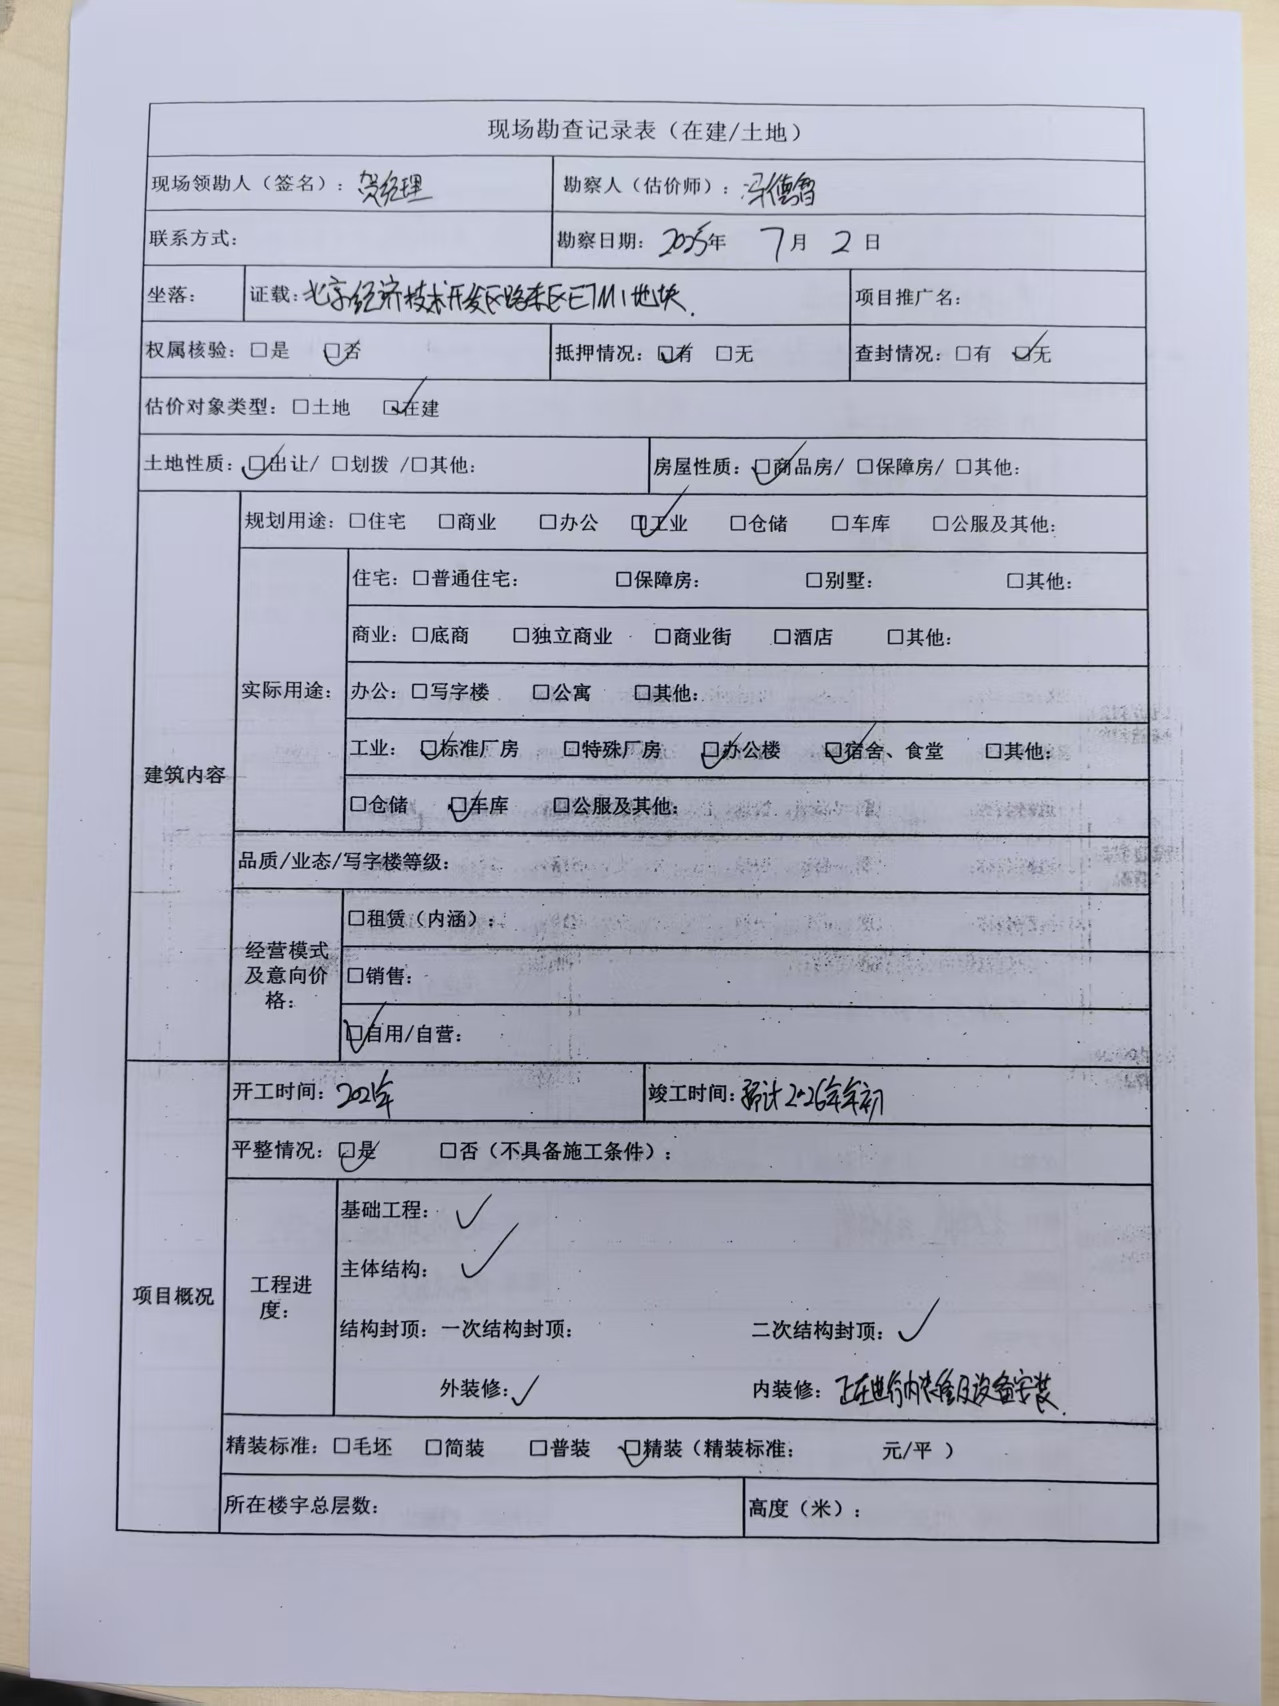 现场勘查记录表（在建/土地）
现场领勘人（签名）：贺经理 勘察人（估价师）：冯德智
联系方式： 勘察日期：2025年 7月 2日
坐落： 证载：北京经济技术开发区路东区E7M1地块. 项目推广名：
权属核验：□是 ☑否 抵押情况：☑有 □无 查封情况：□有 ☑无
估价对象类型：□土地 ☑在建
土地性质：☑出让/ □划拨 /□其他： 房屋性质：☑商品房/ □保障房/ □其他：
建筑内容
规划用途：□住宅 □商业 □办公 ☑工业 □仓储 □车库 □公服及其他：
实际用途：
住宅：□普通住宅： □保障房： □别墅： □其他：
商业：□底商 □独立商业 □商业街 □酒店 □其他：
办公：□写字楼 □公寓 □其他：
工业：☑标准厂房 □特殊厂房 ☑办公楼 ☑宿舍、食堂 □其他：
□仓储 ☑车库 □公服及其他：
品质/业态/写字楼等级：
经营模式
及意向价
格：
□租赁（内涵）：
□销售：
☑自用/自营：
项目概况
开工时间：2021年 竣工时间：预计2026年年初
平整情况：☑是 □否（不具备施工条件）：
工程进
度：
基础工程：✓
主体结构：✓
结构封顶：一次结构封顶： 二次结构封顶：✓
外装修：✓ 内装修：正在进行内装修及设备安装.
精装标准：□毛坯 □简装 □普装 ☑精装（精装标准： 元/平 ）
所在楼宇总层数： 高度（米）：